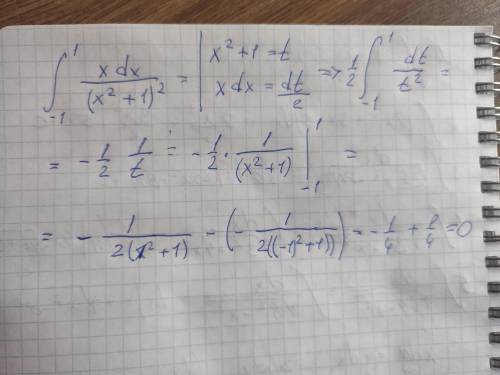 ∫₋₁¹ x dx / (x² + 1)² = | x² + 1 = t, x dx = dt/2 | => 1/2 ∫₋₁¹ dt / t² =
= - 1/2 1/t = - 1/2 · 1 / (x² + 1) |₋₁¹ =
= - 1 / 2(1² + 1) - (- 1 / 2((-1)² + 1)) = - 1/4 + 1/4 = 0